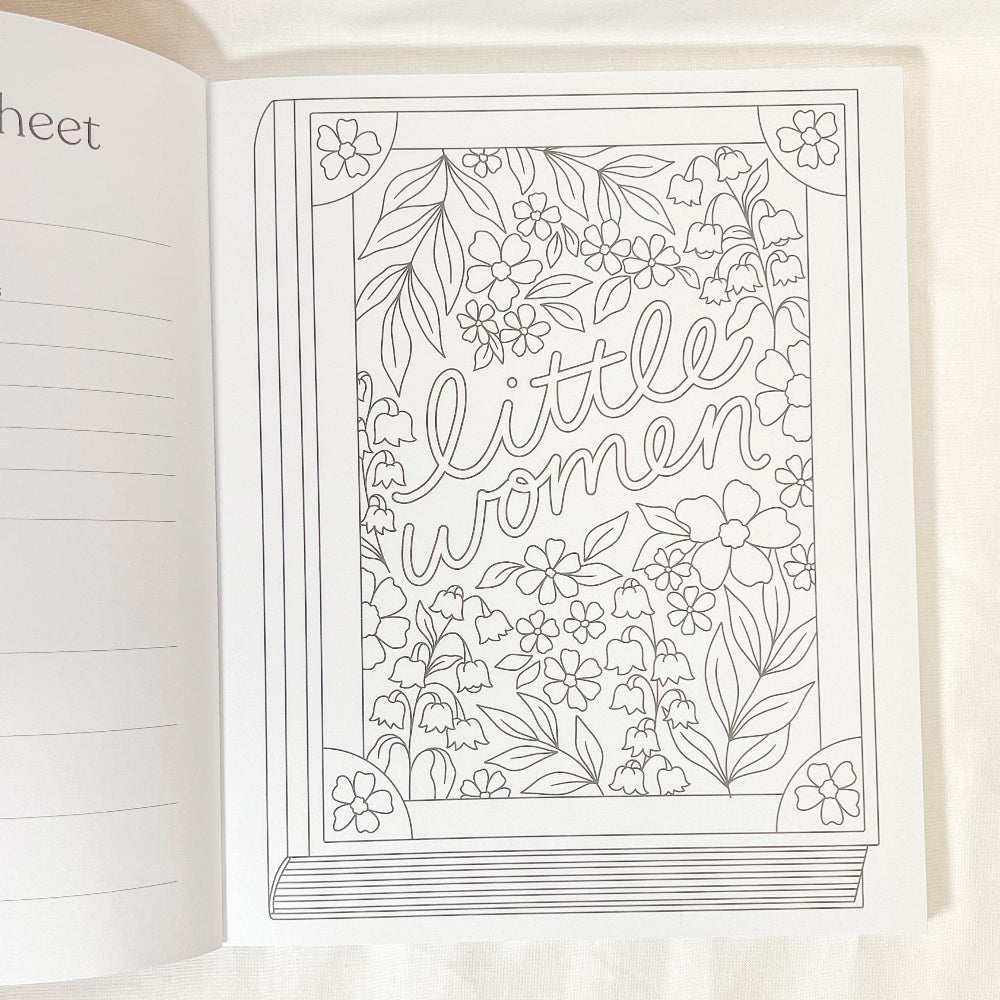 heet
s
little
women